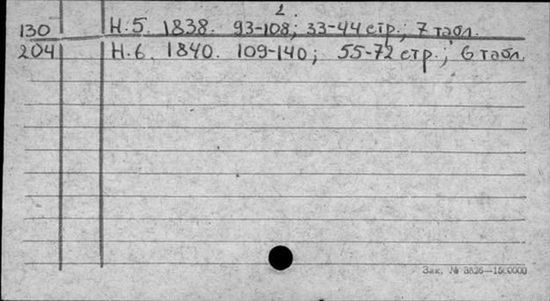 2.
130 Н.5. 1838. 93-108; 33-44 стр.; 7 табл.
204 Н.6. 1840. 109-140; 55-72 стр.; 6 табл.
Зак. № 3826—1500000